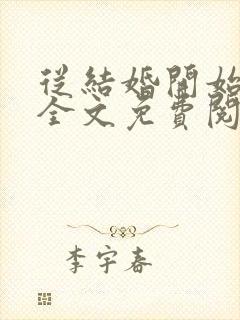 從結婚開始
全文免費閱
李宇春